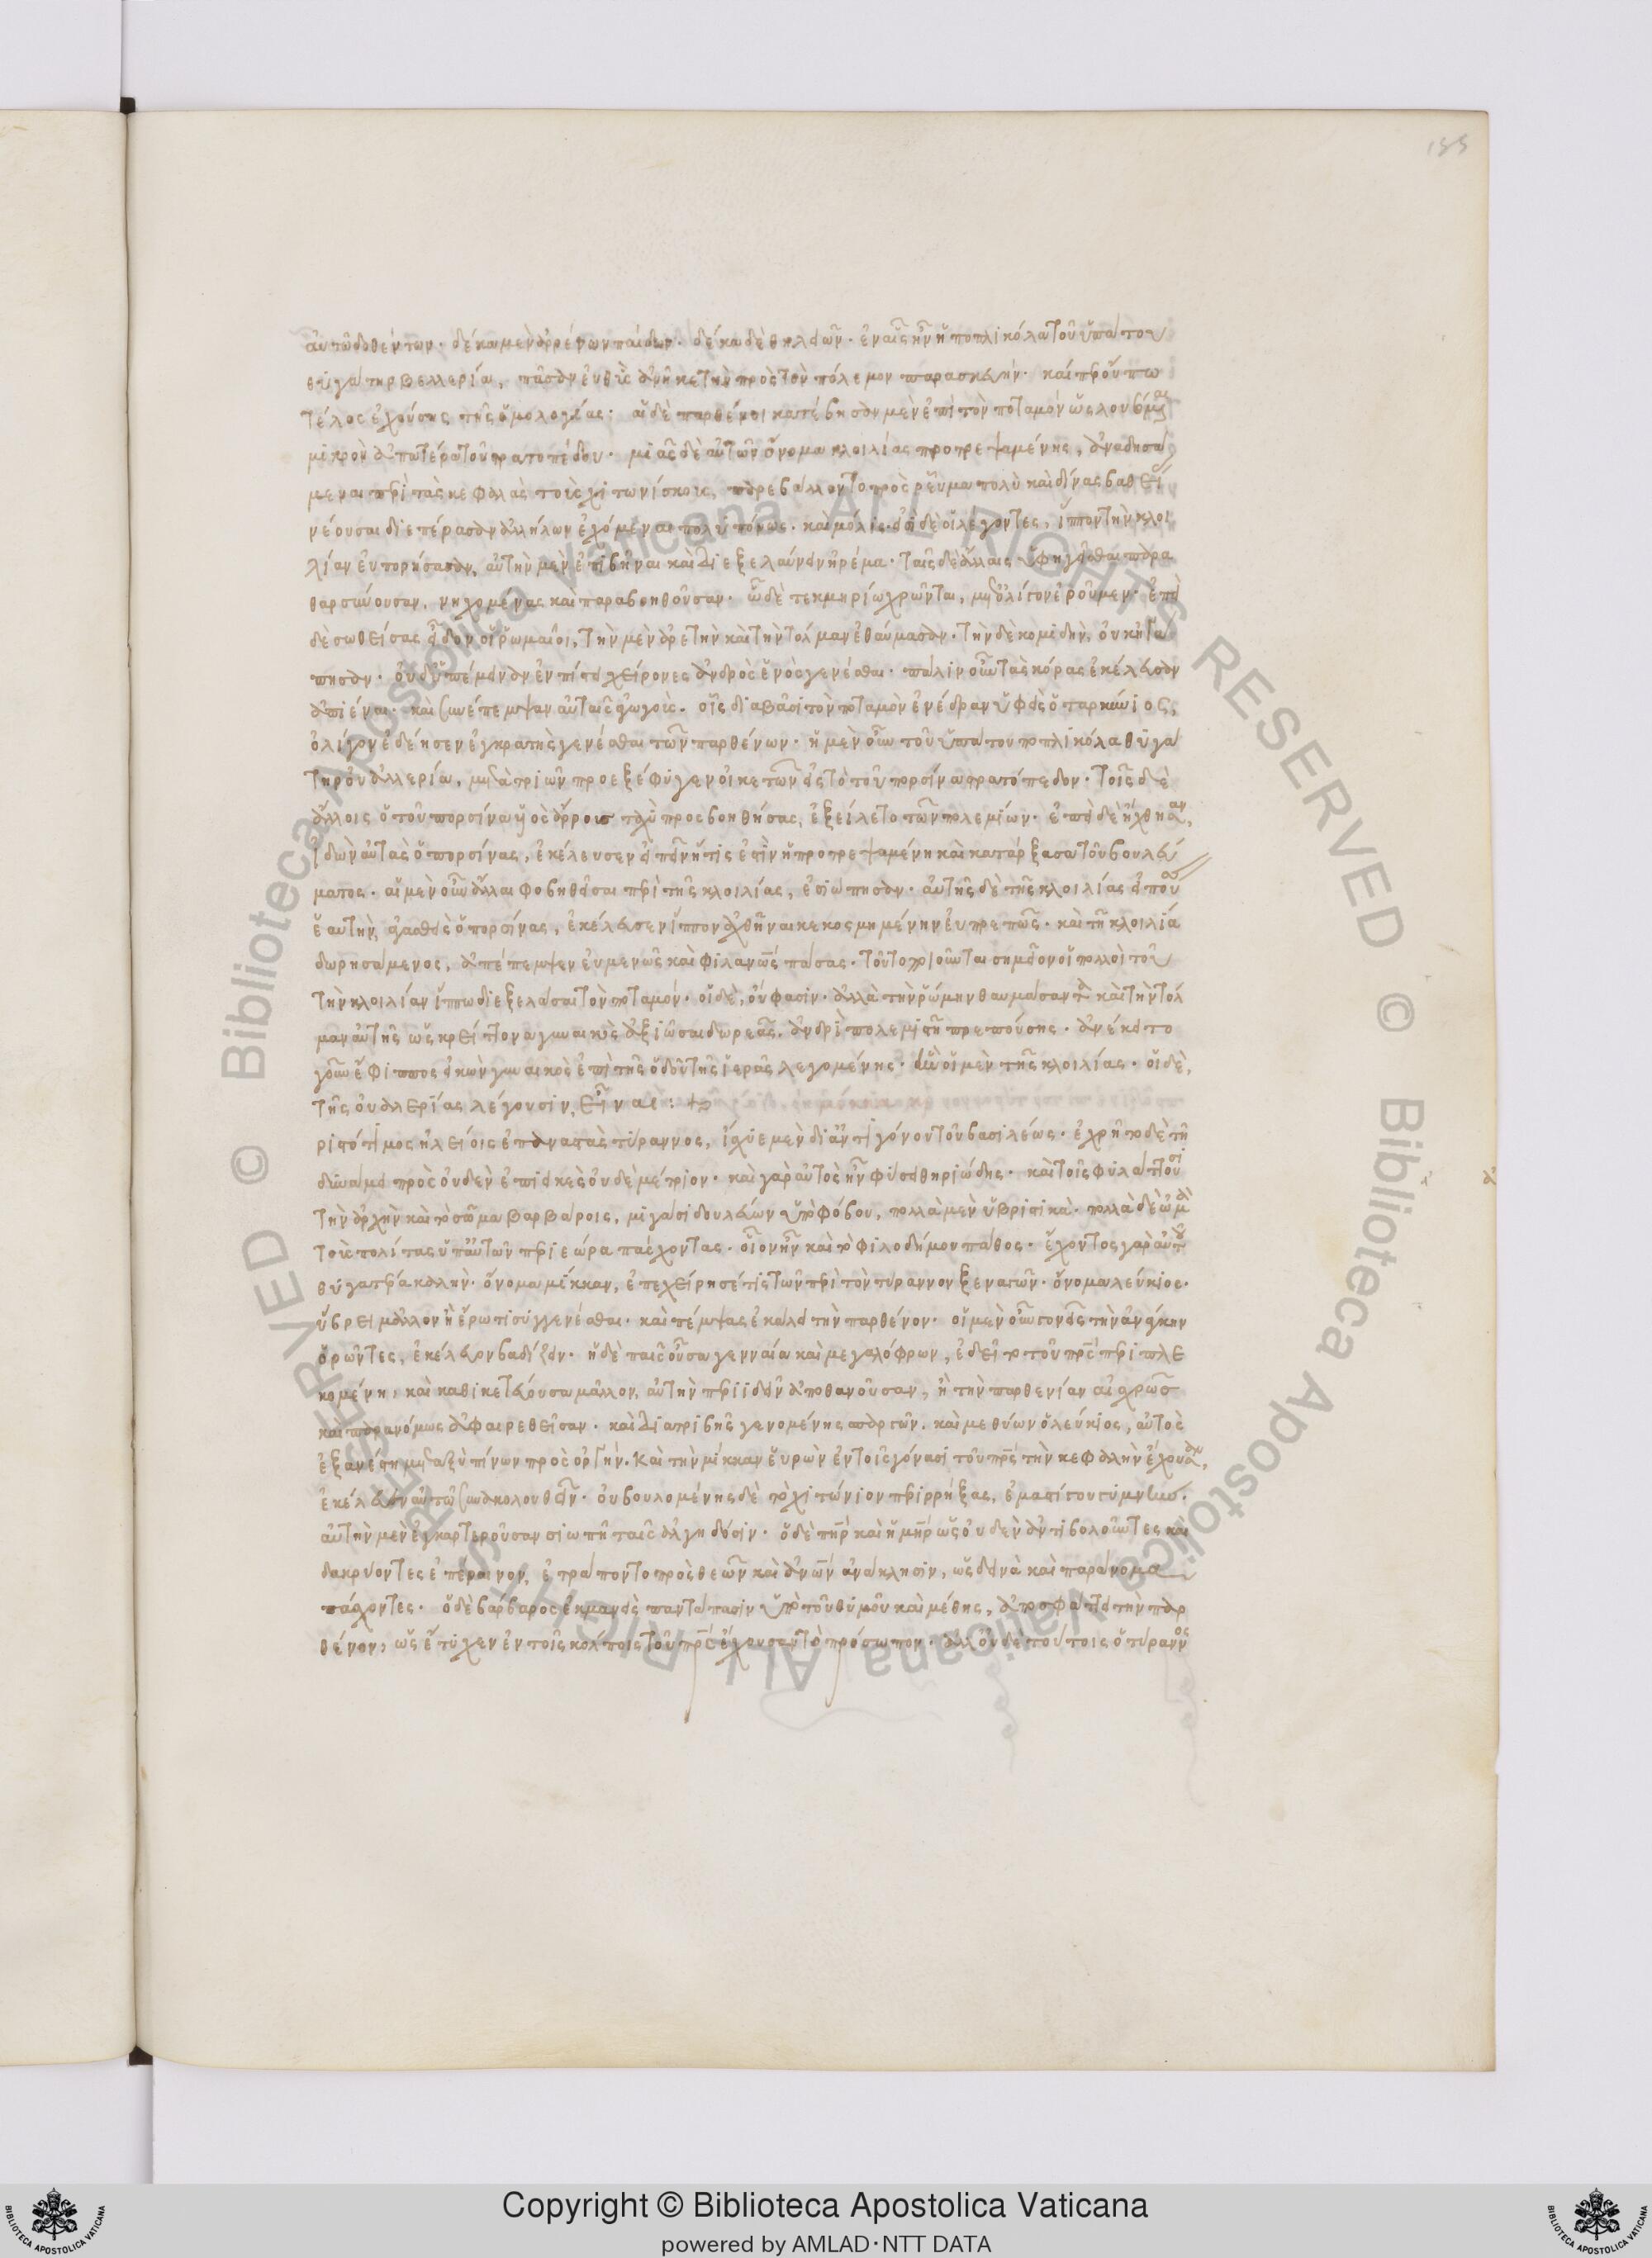 135
αὐτῶ δοθέντων. δέκα μὲν ἀρρένων παίδων. δέκα δὲ θηλειῶν. ἐν αἷς ἦν ἡ ποπλικόλα τοῦ ὑπάτου
θυγάτηρ βελλερία, πᾶσαν εὐθὺς ἀνῆκε τὴν πρὸς τὸν πόλεμον παρασκευήν. καίπερ οὔπω
τέλος ἐχούσης τῆς ὁμολογίας. αἱ δὲ παρθένοι κατέβησαν μὲν ἐπὶ τὸν ποταμὸν ὡς λουσόμεναι
μικρὸν ἀπωτέρω τοῦ στρατοπέδου. μιᾶς δὲ αὐτῶν ὄνομα κλοιλίας προτρεψαμένης, ἀναδησά
μεναι περὶ τὰς κεφαλὰς τοὺς χιτωνίσκους, παρεβάλλοντο πρὸς ῥεῦμα πολὺ καὶ δίνας βαθεί
νέουσαι διεπέρασαν ἀλλήλων ἐχόμεναι πολυπόνως. καὶ μόλις. εἰσὶ δὲ οἱ λέγοντες, ἵππον τὴν κλοι
λίαν εὐπορήσασαν, αὐτὴν μὲν ἐπιβῆναι καὶ διεξελαύνειν ἠρέμα. ταῖς δὲ ἄλλαις ὑφηγεῖσθαι παρα
θαρσύνουσαν, νηχομένας καὶ παραβοηθοῦσαν. ὧ δὲ τεκμηρίω χρῶνται, μετ' ὀλίγον ἐροῦμεν. ἐπεὶ
δὲ σωθείσας εἶδον οἱ ῥωμαῖοι, τὴν μὲν ἀρετὴν καὶ τὴν τόλμαν ἐθαύμασαν. τὴν δὲ κομιδὴν, οὐκ ἠγά
πησαν. οὐδ' ὑπέμειναν ἐν πίστει χείρονες ἀνδρὸς ἑνὸς γενέσθαι. πάλιν οὖν τὰς κόρας ἐκέλευσαν
ἀπιέναι. καὶ συνέπεμψαν αὐταῖς ἀγωγούς. οἷς διαβᾶσι τὸν ποταμὸν ἐνέδραν ὑφεὶς ὁ ταρκύνιος,
ὀλίγον ἐδέησεν ἐγκρατὴς γενέσθαι τῶν παρθένων. ἡ μὲν οὖν τοῦ ὑπάτου ποπλικόλα θυγά
τηρ οὐαλλερία, μετὰ τριῶν προεξέφυγεν οἰκετῶν εἰς τὸ τοῦ πορσίνα στρατόπεδον. τοῖς δὲ
ἄλλοις ὁ τοῦ πορσίνα υἱὸς ἄρρους ταχὺ προσβοηθήσας, ἐξείλετο τῶν πολεμίων. ἐπεὶ δὲ ἤχθησαν,
ἰδὼν αὐτὰς ὁ πορσίνας, ἐκέλευσεν εἰπεῖν ἥτις ἐστὶν ἡ προτρεψαμένη καὶ κατάρξασα τοῦ βουλεύ
ματος. αἱ μὲν οὖν ἄλλαι φοβηθεῖσαι περὶ τῆς κλοιλίας, ἐσιώπησαν. αὐτῆς δὲ τῆς κλοιλίας εἰπού
ἑαυτὴν, ἀγασθεὶς ὁ πορσίνας, ἐκέλευσεν ἵππον ἀχθῆναι κεκοσμημένην εὐπρεπῶς. καὶ τῆ κλοιλία
δωρησάμενος, ἀπέπεμψεν εὐμενῶς καὶ φιλανως πάσας. τοῦτο ποιοῦνται σημεῖον οἱ πολλοὶ τοῦ
τὴν κλοιλίαν ἵππω διεξελάσαι τὸν ποταμόν. οἱ δὲ, οὔ φασιν. ἀλλὰ τὴν ῥώμην θαυμάσαντα καὶ τὴν τόλ
μαν αὐτῆς ὡς κρείττονα γυναικὸς ἀξιῶσαι δωρεᾶς ἀνδρὶ πολεμιστῆ πρεπούσης. ἀνέκειτο
γοῦν ἔφιππος εἰκὼν γυναικὸς ἐπὶ τῆς ὁδοῦ τῆς ἱερᾶς λεγομένης. ἣν οἱ μὲν τῆς κλοιλίας. οἱ δὲ,
τῆς οὐαλερίας λέγουσιν, εἶναι :
ριστότιμος ἠλείοις ἐπαναστὰς τύραννος, ἴσχυε μὲν δι' ἀντιγόνου τοῦ βασιλέως. ἐχρῆτο δὲ τῆ
δυνάμει πρὸς οὐδὲν ἐπιεικὲς οὐδὲ μέτριον. καὶ γὰρ αὐτὸς ἦν φύσει θηριώδης. καὶ τοῖς φυλάττουσι
τὴν ἀρχὴν καὶ τὸ σῶμα βαρβάροις, μιγάσι δουλεύων ὑπὸ φόβου, πολλὰ μὲν ὑβριστικὰ. πολλὰ δὲ ὠμὰ
τοὺς πολίτας ὑπ' αὐτῶν περιεώρα πάσχοντας. οἷον ἦν καὶ τὸ φιλοδήμου πάθος. ἔχοντος γὰρ αὐτοῦ
θυγατέρα καλὴν. ὄνομα μίκκαν, ἐπεχείρησέ τις τῶν περὶ τὸν τύραννον ξεναγῶν. ὄνομα λεύκιος.
ὕβρει μᾶλλον ἢ ἔρωτι συγγενέσθαι. καὶ πέμψας ἐκάλει τὴν παρθένον. οἱ μὲν οὖν γονεῖς τὴν ἀνάγκην
ὁρῶντες, ἐκέλευον βαδίζειν. ἡ δὲ παῖς οὖσα γενναία καὶ μεγαλόφρων, ἐδεῖτο τοῦ πρς περιπλε
κομένη, καὶ καθικετεύουσα μᾶλλον, αὐτὴν περιιδεῖν ἀποθανοῦσαν, ἢ τὴν παρθενίαν αἰσχρῶς
καὶ παρανόμως ἀφαιρεθεῖσαν. καὶ διατριβῆς γενομένης σπαργῶν. καὶ μεθύων ὁ λεύκιος, αὐτὸς
ἐξανέστη μεταξὺ πίνων πρὸς ὀργήν. καὶ τὴν μίκκαν εὑρὼν ἐν τοῖς γόνασι τοῦ πρς τὴν κεφαλὴν ἔχουσαν,
ἐκέλευεν αὐτῶ συνακολουθεῖν. οὐ βουλομένης δὲ τὸ χιτώνιον περιρρήξας, ἐμαστίγου γυμνὴν.
αὐτὴν μὲν ἐγκαρτεροῦσαν σιωπῆ ταῖς ἀλγηδόσιν. ὁ δὲ πηρ καὶ ἡ μηρ ὡς οὐδὲν ἀντιβολοῦντες καὶ
δακρύοντες ἐπέραινον, ἐτράποντο πρὸς θεῶν καὶ ἀνων ἀνάκλησιν, ὡς δεινὰ καὶ παράνομα
πάσχοντες. ὁ δὲ βάρβαρος ἐκμανεὶς παντάπασιν ὑπὸ τοῦ θυμοῦ καὶ μέθης, ἀποσφάττει τὴν παρ
θένον, ὡς ἔτυχεν ἐν τοῖς κόλποις τοῦ πρς ἔχουσα τὸ πρόσωπον. ἀλλ' οὐδὲ τούτοις ὁ τύραννος
Copyright © Biblioteca Apostolica Vaticana
powered by AMLAD·NTT DATA
© Biblioteca Apostolica Vaticana ALL RIGHTS RESERVED
© Biblioteca Apostolica Vaticana ALL RIGHTS RESERVED
BIBLIOTECA APOSTOLICA VATICANA
BIBLIOTECA APOSTOLICA VATICANA